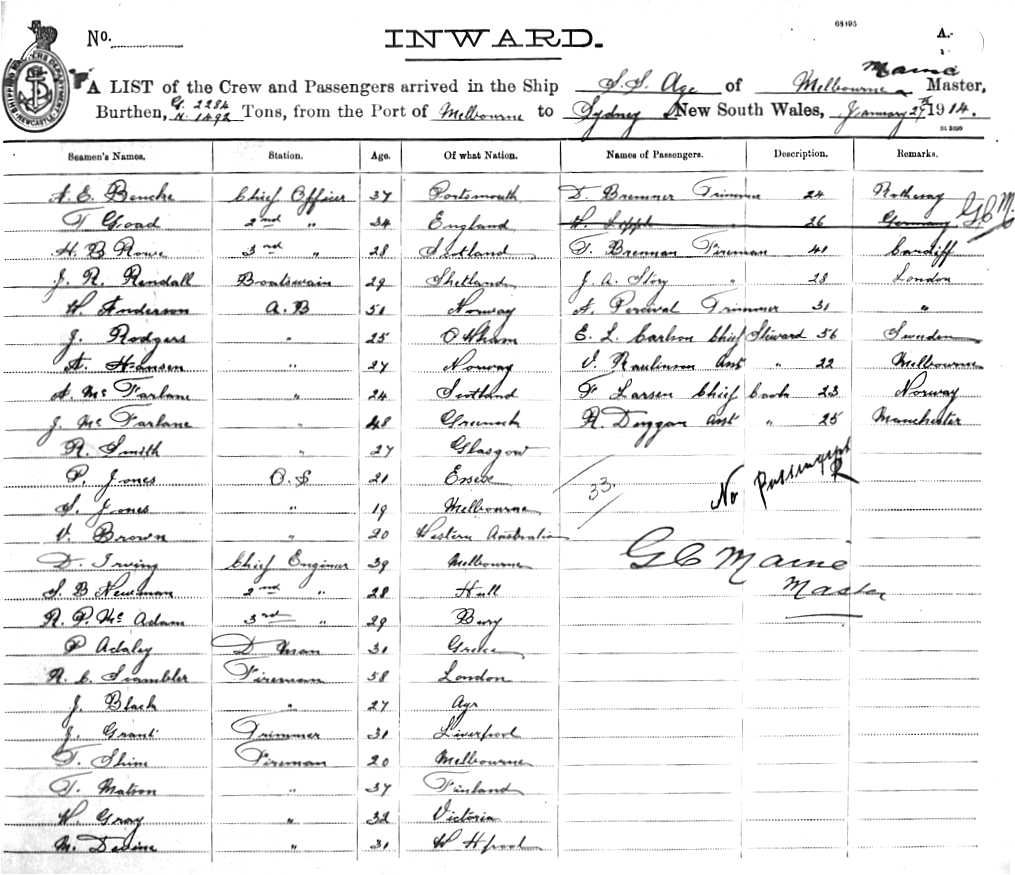 68495
No. INWARD. A.
1
A LIST of the Crew and Passengers arrived in the Ship S.S. Age of Melbourne Maine Master,
Burthen, G. 2284 N. 1492 Tons, from the Port of Melbourne to Sydney New South Wales, January 27 1914.
Seamen's Names. Station. Age. Of what Nation. Names of Passengers. Description. Remarks.
A. E. Bencke Chief Officer 37 Portsmouth D. Bremner Trimmer 24 Rothesay
T Goad 2nd " 34 England W. Lippl " 26 Germany G.C.M
H. B Rowe 3rd " 28 Scotland T. Brennan Fireman 41 Cardiff
J. R. Rendall Boatswain 29 Shetland J. A. Story " 28 London
W. Anderson A.B 51 Norway A. Percival Trimmer 31 "
J. Rodgers " 25 E. L. Carlson Chief Steward 56 Sweden
A. Hansen " 27 Norway V. Rawlinson Asst " 22 Melbourne
A. McFarlane " 24 Scotland F Larsen Chief Cook 23 Norway
J. McFarlane " 48 Greenock R. Duggan Asst " 25 Manchester
R. Smith " 27 Glasgow
P. Jones O.S 21 Essex 33. No Passengers
S. Jones " 19 Melbourne
V. Brown " 20 Western Australia
D. Irving Chief Engineer 39 Melbourne G C Maine
S. B Newman 2nd " 28 Hull Master
R. P. McAdam 3rd " 29 Bury
P Adaley D. Man 31 Greece
R. C. Scambler Fireman 58 London
J. Black " 27 Ayr
J. Grant Trimmer 31 Liverpool
T. Shine Fireman 20 Melbourne
T. Matson " 37 Finland
W. Gray " 32 Victoria
M. Devine " 31 W Hpool